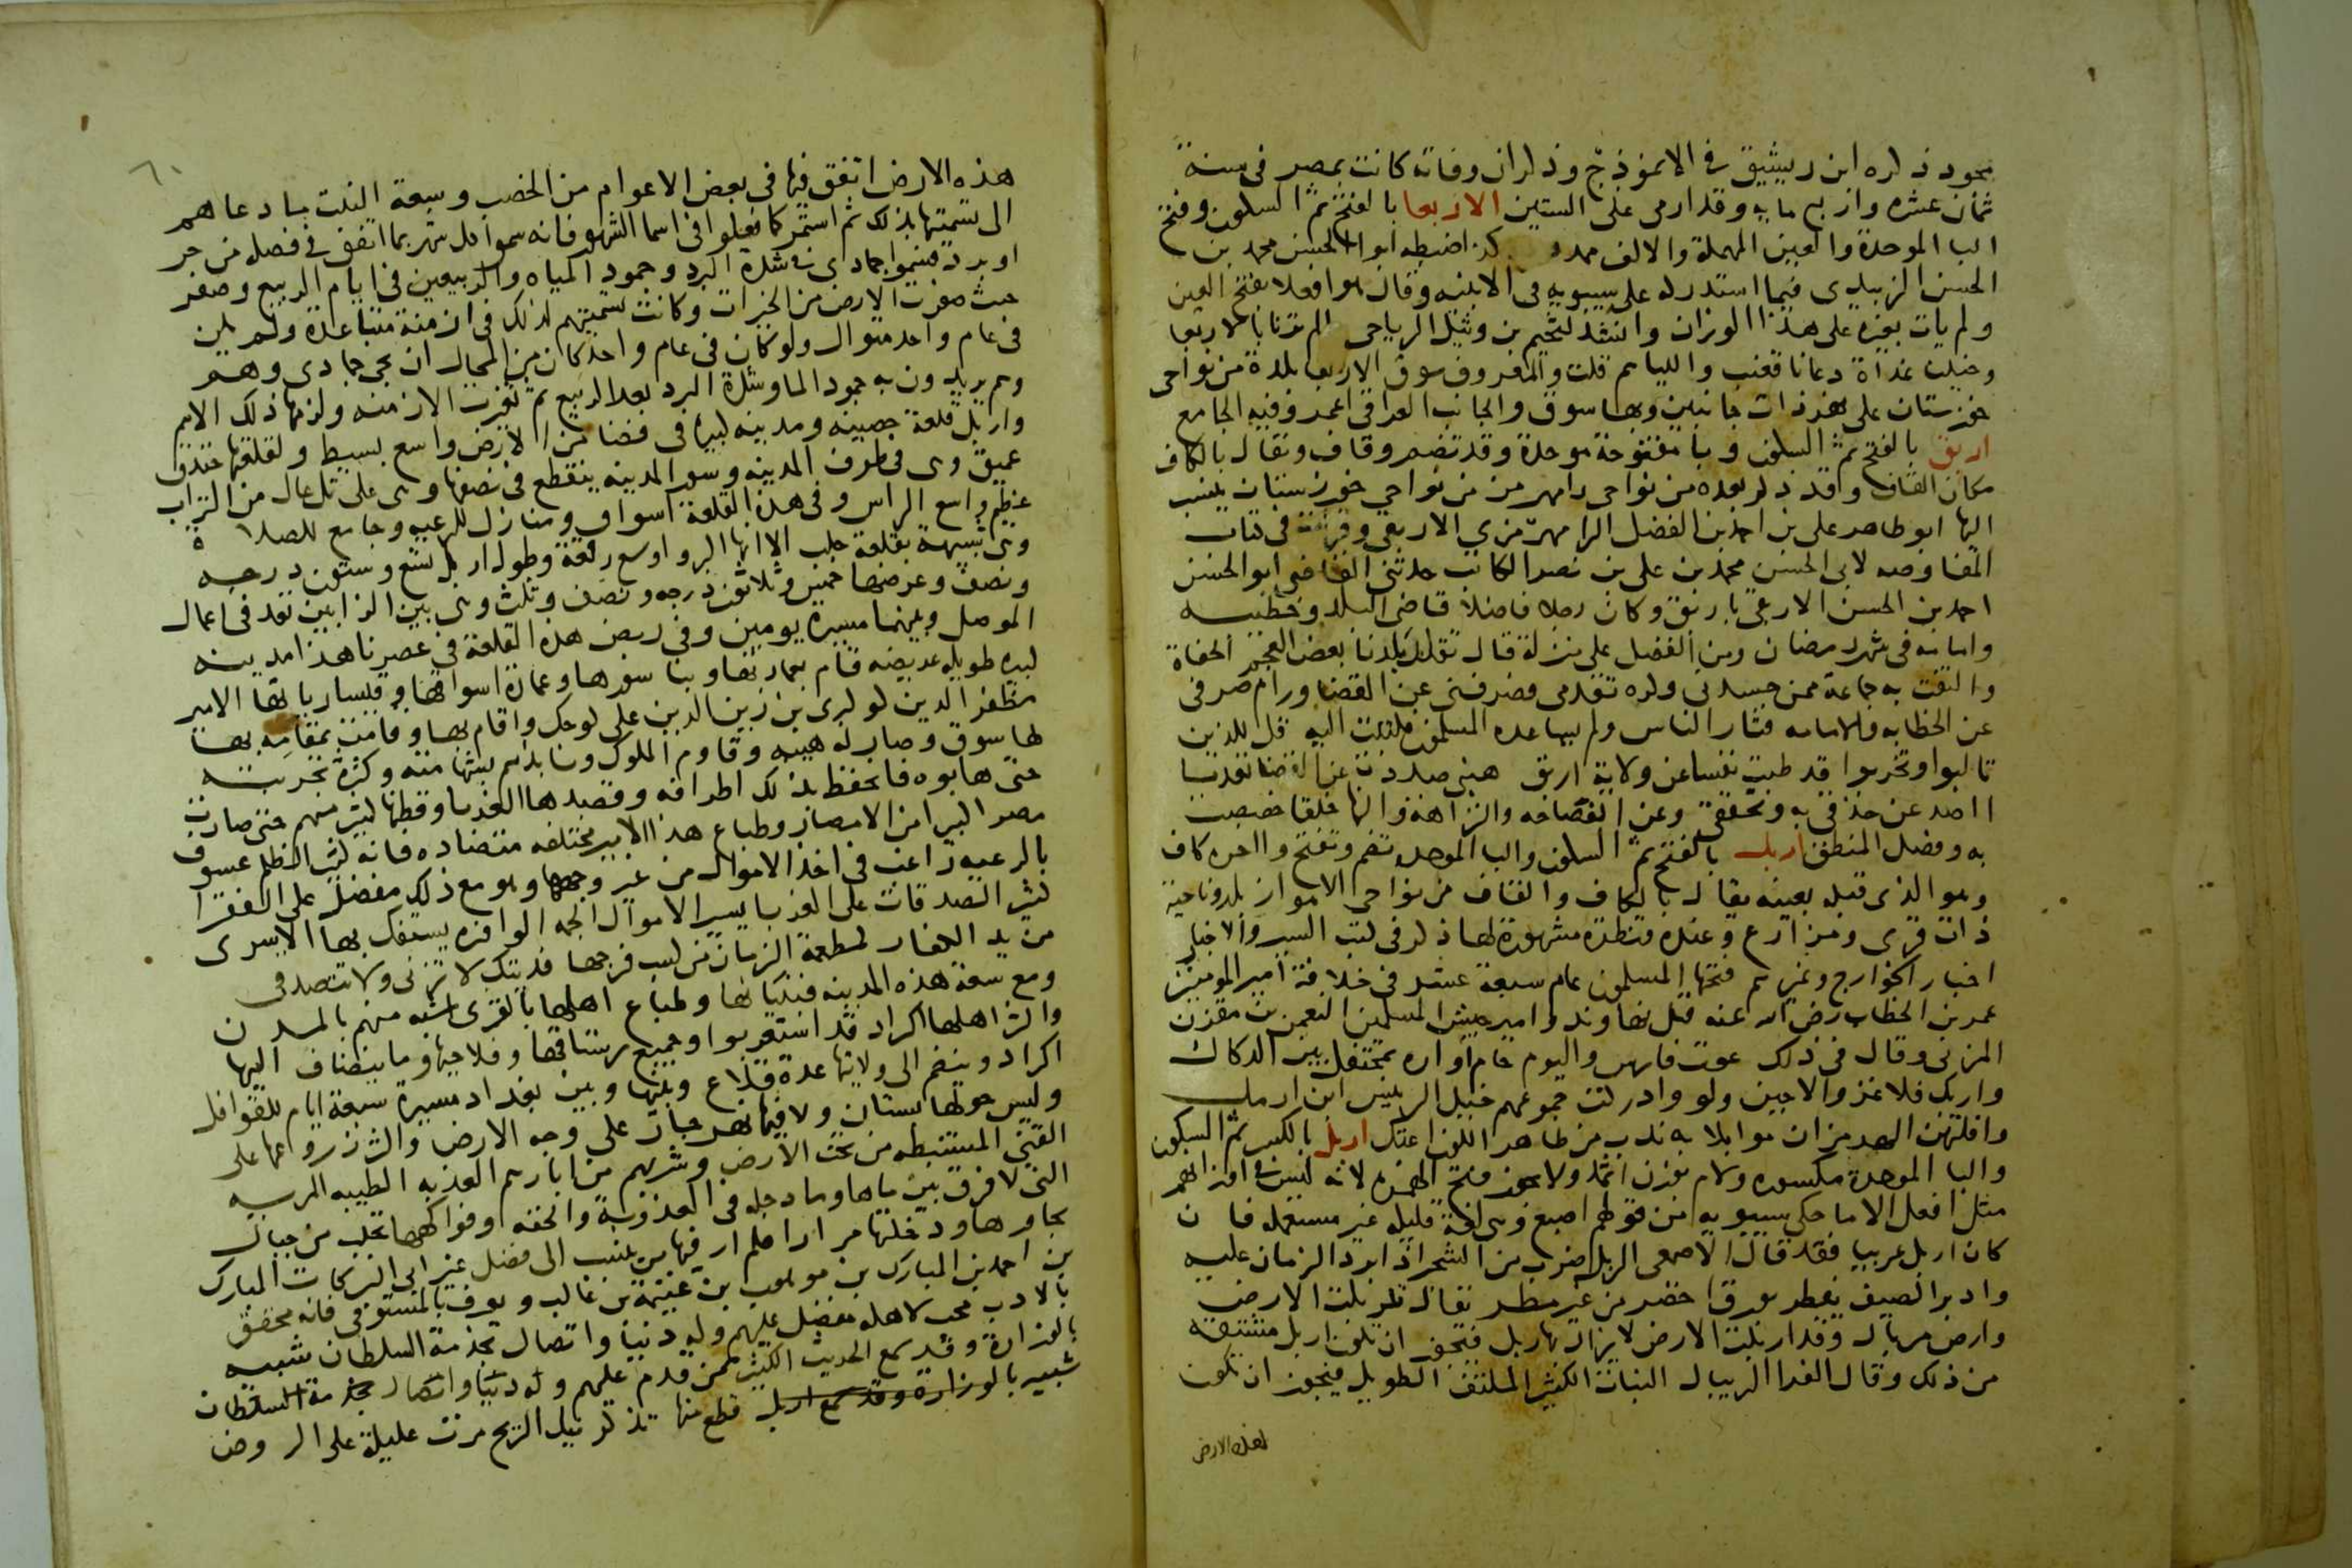 مجود ذكره ابن رشيق في الانموذج وذكر ان وفاته كانت بمصر في سنة
ثمان عشره واربع مايه وقد ارمى على الستين الاربعا بالفتح ثم السكون وفتح
البا الموحدة والعين المهملة والالف ممدود كذا ضبطه ابوا الحسن محمد بن
الحسن الزبيدى فيما استدركه على سيبويه فى الابنيه وقال هو افعلا بفتح العين
ولم يات بغيره على هذا الوزان وانشد لسحيم بن وثيل الرياحى الم ترنا بالاربعا
وخيلنا غداة دعانا قعنب واللياهم قلت والمعروف سوق الاربعا بلدة من نواحى
خوزستان على نهر ذات جانبين وبها سوق والجانب العراقى اعمر وفيه الجامع
اربق بالفتح ثم السكون وبا مفتوحة موحدة وقد تضم وقاف وتقال بالكاف
مكان القاف وقد ذكر بعده من نواحى رامهرمز من نواحي خوزستان ينسب
اليها ابو طاهر على بن احمد بن الفضل الرامهرمزى الاربقى وقرات فى كتاب
المفاوضه لابى الحسن محمد بن على بن نصر الكاتب حدثنى القاضى ابو الحسن
احمد بن الحسن الاربقى باربق وكان رجلا فاضلا قاضى البلد وخطيبه
وامامه فى شهر رمضان ومن الفضل على منزلة قال تقلد بلدنا بعض العجم الجفاة
والتفت به جماعة ممن حسدنى وكره تقدمى فصرفنى عن القضا ورام صرفى
عن الخطابه والامامه فثار الناس ولم يساعده المسلمون فكتبت اليه قل للذين
تالبوا وتحزبوا قد طبت نفسا عن ولاية اربق هبنى صددت عن القضا تعديا
ااصد عن حذقى به وتحققى وعن الفصاحه والنزاهة والنها خلقا خصصت
به وفضل المنطق اربك بالفتح ثم السكون والبا الموحده تضم وتفتح واخره كاف
وهو الذى قبله بعينه يقال بالكاف والقاف من نواحى الاهواز بلد وناحية
ذات قرى ومزارع وعنده قنطرة مشهورة لها ذكر فى كتب السير والاخبار
اخبار الخوارج وغيرهم فتحها المسلمون عام سبعة عشر فى خلافة امير المومنين
عمر بن الخطاب رضى الله عنه قبل نهاوند وامير جيش المسلمين النعمن بن مقرن
المزنى وقال فى ذلك عوت فارس واليوم حام اواره بمحتفل بين الدكاك
واربك فلا غزو الا حين ولوا وادركت جموعهم خيل الرييس ابن ارمك
وافلتهن الهرمزان موايلا به ندب من ظاهر اللون اعتك اربل بالكسر ثم السكون
والبا الموحدة مكسوره ولام بوزن اثمد ولا يجوز فتح الهمزه لانه ليس فى اوزانهم
مثل افعل الا ما حكى سيبويه من قولهم اصبع وهى لغة قليله غير مستعمله فان
كان اربل عربيا فقد قال الاصمعى الربل ضرب من الشجر اذا ابرد الزمان عليه
وادبر الصيف تفطر بورق اخضر من غير مطر تقال تربلت الارض
وارض مربال وقد اربلت الارض لا يزال بها ربل فيجوز ان تكون اربل مشتقه
من ذلك وقال الفرا الريبال النبات الكثير الملتف الطويل فيجوز ان تكون
هذه الارض
هذه الارض اتفق فيها فى بعض الاعوام من الخصب وسعة النبت ما دعاهم
الى تسميتها بذلك ثم استمر كما فعلوا فى اسما الشهور فانه سموا كل شهر بما اتفق فى فصله من حر
او برد فسموا جمادى فى شدة البرد وجمود المياه والربيعين فى ايام الربيع وصفر
حيث صفرت الارض من الخيرات وكانت تسميتهم لذلك فى ازمنة متباعدة ولم يكن
فى عام واحد متوال ولو كان فى عام واحد كان من المحال ان يجى جمادى وهم
وهم يريدون به جمود الما وشدة البرد بعد الربيع ثم تغيرت الازمنه ولزمها ذلك الاسم
واربل قلعة حصينه ومدينه كبيره فى فضا من الارض واسع بسيط ولقلعتها خندق
عميق وهى فى طرف المدينه وسور المدينه ينقطع فى نصفها وهى على تل عال من التراب
عظيم واسع الراس وفى هذه القلعة اسواق ومنازل للرعيه وجامع للصلاة
وهى شبيهة بقلعة حلب الا انها اكبر واوسع رقعة وطول اربل تسع وستون درجه
ونصف وعرضها خمس وثلاثون درجه ونصف وثلث وهى بين الزابين تعد فى اعمال
الموصل وبينهما مسيرة يومين وفى ربض هذه القلعة فى عصرنا هذا مدينه
كبيره طويله عريضه قام بعمارتها وبنا سورها وعمارة اسواقها وقيسارياتها الامير
مظفر الدين كوكبرى بن زين الدين على كوجك واقام بها وقامت بمقامه بها
لها سوق وصار له هيبه وقاوم الملوك ونابذهم بشهامته وكثرة تجربته
حتى هابوه فانحفظ بذلك اطرافه وقصدها الغربا وقطنها كثير منهم حتى صارت
مصرا كبيرا من الامصار وطباع هذا الامير مختلفه متضاده فانه كثير الظلم عسوف
بالرعيه راغب فى اخذ الاموال من غير وجهها وهو مع ذلك مفضل على الفقرا
كثير الصدقات على الغربا يسير الاموال الجمه الوافره يستفك بها الاسرى
من يد الكفار لمطعمة الزمان من كسب فرجها فديتك لا تزنى ولا تتصدقى
ومع سعة هذه المدينه فبنيانها وطباع اهلها بالقرى اشبه منهم بالمدن
واكثر اهلها اكراد قد استعربوا وجميع رستاقها وفلاحيها وما ينضاف اليها
اكراد وينضم الى ولايتها عدة قلاع وبينها وبين بغداد مسيرة سبعة ايام للقوافل
وليس حولها بستان ولا فيها نهر جار على وجه الارض واكثر زروعها على
القنى المستنبطه من تحت الارض وشربهم من ابارهم العذبه الطيبه المريه
التى لا فرق بين ماها وما دجله فى العذوبة والخفه وفواكهها تجلب من جبال
تجاورها ودخلتها مرارا فلم ار فيها من ينسب الى فضل غير ابى البركات المبارك
بن احمد بن المبارك بن موهوب بن غنيمة بن غالب ويعرف بالمستوفى فانه محقق
بالادب محب لاهله مفضل عليهم وله دنيا واتصال بخدمة السلطان شبيه
بالوزارة وقد سمع الحديث الكثير ممن قدم عليهم وله دنيا واتصال بخدمة السلطان
شبيه بالوزارة وقد سمع اربل قطع منها تذكرنيك الريح مرت عليلة على الروض